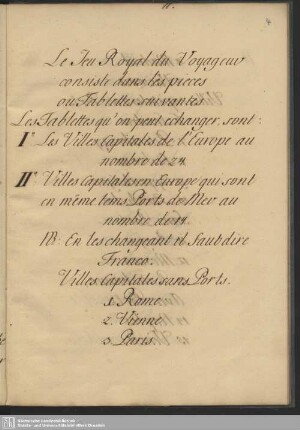 4
Le Jeu Royal du Voyageur
consiste dans les pieces
ou Tablettes suivantes
Les Tablettes qu'on peut echanger, sont:
I° Les Villes Capitales de l'Europe au
nombre de 24.
II° Villes Capitales en Europe qui sont
en même tems Ports de Mer au
nombre de
NB: En les changeant il faut dire
Franco.
Villes Capitales sans Ports.
1. Rome
2. Vienne
3. Paris